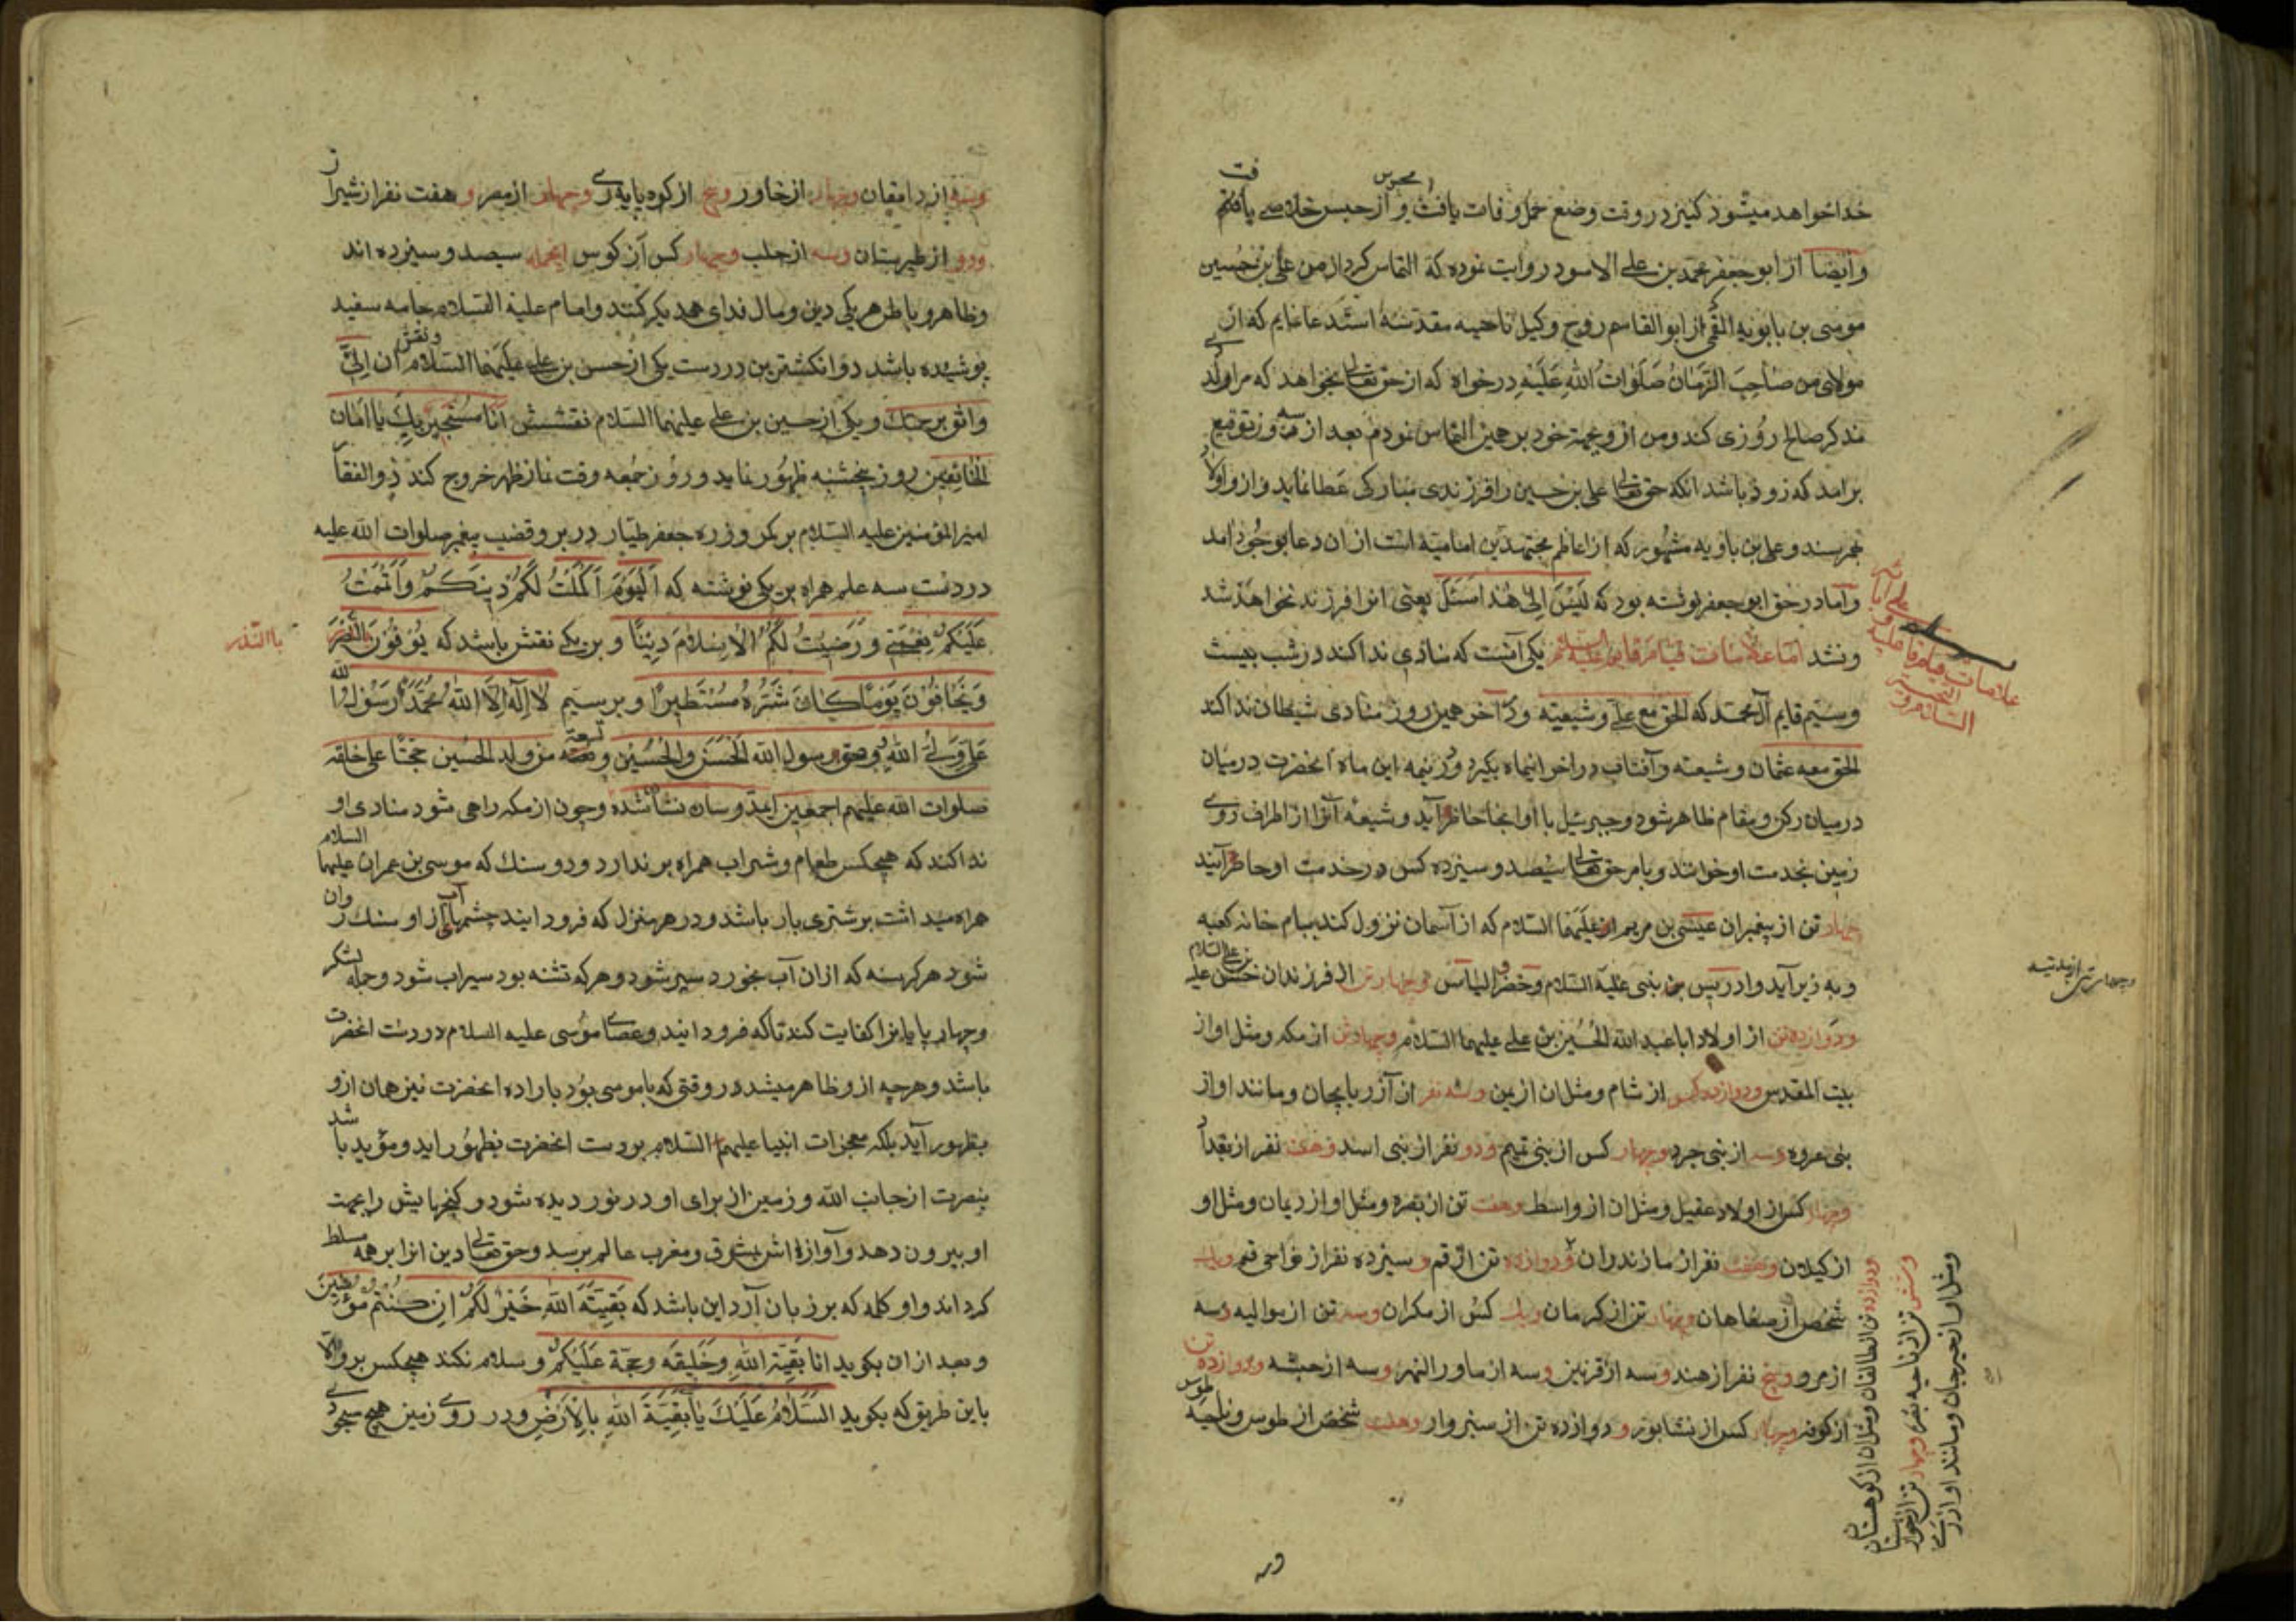 خدا خواهد میشود کنیز در وقت وضع حمل وفات یافت و از حبس خلاصی یافتم
وایضا از ابو جعفر محمد بن علی الاسود روایت نموده که التماس کرد از من علی بن حسین
موسی بن بابویه القمی از ابو القاسم روح وکیل ناحیه مقدسه استدعا نمایم که از
مولای من صاحب الزمان صلوات الله علیه درخواه که از حق تعالی بخواهد که مرا ولد
مذکر صالح روزی کند ومن از وجهة خود بر همین التماس نمودم بعد از سه روز توقیع
برآمد که زود باشد انکه حق تعالی علی بن حسین را فرزندی مبارکی عطا نماید واز و اولاد
بهرسند وعلی بن بابویه مشهور که از اعاظم مجتهدین امامیه است از ان دعا بوجود امد
واما در حق ابو جعفر نوشته بود که لیس الی هذا اسئل یعنی انرا فرزند نخواهد شد
ونشد اما علامات قیام قایم علیه السلام یکی آنست که منادی ندا کند در شب بیست
وسیم قایم آل محمد که الحق مع علی وشیعته ودر آخر همین روز منادی شیطان ندا کند
الحق معه عثمان وشیعته وآفتاب در اخر انماه بگیرد ودر نیمه این ماه انحضرت درمیان
درمیان رکن ومقام ظاهر شود وجبرئیل با او انجا حاظر آید وشیعهٔ آنرا از اطراف روی
زمین بخدمت او خوانند وبامر حق تعالی سیصد وسیزده کس در خدمت او حاظر آیند
چهار تن از پیغمبران عیسی بن مریم علیهما السلام که از آسمان نزول کند ببام خانه کعبه
وبه زیر آید وادریس نبی علیه السلام وخضر والیاس وچهار تن از فرزندان حسن بن علی علیه السلام
ودوازده تن از اولاد ابا عبد الله الحسین بن علی علیهما السلام وچهار تن از مکه ومثل او از
بیت المقدس ودوازده کس از شام ومثل ان از یمن وسه نفر از آذربایجان ومانند او از
بنی عروه وسه از بنی جرد وچهار کس از بنی تمیم ودو نفر از بنی اسد وهفت نفر از بغداد
وچهار کس از اولاد عقیل ومثل ان از واسط وهفت تن از بصره ومثل او از ومثل او
از کیلان وهفت نفر از مازندران ودوازده تن از قم وسیزده نفر از نواحی قم ویک
شخص از صفاهان وچهار تن از کرمان ویک کس از مکران وسه تن از وسه
از مرو وپنج نفر از هند وسه از قزنین وسه از ماور النهر وسه از حبشه ودوازده تن
از کوفه وچهار کس از نشابور ودوازده تن از سبزوار وهفت شخص از طوس وناحیه طوس
علامات قیام قایم علیه
وچهار تن از مدینه
ودوازده تن از طالقان ومثل ان از کوهستان
وشش تن از ناحیه بصره وچهار تن از خوارستان
ومثل او از جیرجان ومانند او از ری
وسه از دامغان وچهار از خاور وپنج از کوه پایه ری وچهار از مصر وهفت نفر از شیراز
ودو از طبرستان وسه از حلب وچهار کس از کوس اینجمله سیصد وسیزده اند
وظاهر وباطن هر یکی دین ومال فدای همدیکر کنند وامام علیه السلام جامه سفید
پوشیده باشد دو انکشترین در دست یکی از حسن بن علی علیهما السلام ونقش ان الی
واثق برحمتک ویکی از حسین بن علی علیهما السلام نقشش انا مستجیر بک یا امان
الخائفین روز پنجشنبه ظهور نماید وروز جمعه وقت نماز ظهر خروج کند ذو الفقار
امیر المؤمنین علیه السلام بر کمر وزره جعفر طیار در بر وقضیب پیغمبر صلوات الله علیه
در دست سه علم همراه بر یکی نوشته که الیوم اکملت لکم دینکم واتممت
علیکم نعمتی ورضیت لکم الاسلام دینا وبر یکی نقش باشد که یوفون بالنذر
بالنذر
ویخافون یوما کان شتره مستطیرا وبر سیم لا اله الا الله محمد رسول الله
علی ولی الله وحق رسول الله الحسن والحسین وتسعة من ولد الحسین حججا علی خلقه
صلوات الله علیهم اجمعین وچون از مکه راهی شود منادی او
ندا کند که هیچکس طعام وشراب همراه برندارد ودو سنک که موسی بن عمران علیهما السلام
همراه میداشت بر شتری بار باشد ودر هر منزل که فرود ایند چشمهای آب از او سنک روان
شود هر کرسنه که از ان آب بخورد سیر شود وهر که تشنه بود سیراب شود وجمله لشکر
وچهار پایانرا کفایت کند تا که فرود انید وعصای موسی علیه السلام در دست انحضرت
باشد وهر چه از و ظاهر میشد در وقتی که با موسی بود باراده انحضرت نیز همان ازو
بظهور آید بلکه معجزات انبیا علیهم السلام بر دست انحضرت بظهور اید ومؤید باشد
بنصرت از جانب الله وزمین از برای او در نور دیده شود وکنجهایش را بجهت
او بیرون دهد وآوازه اش بمشرق ومغرب عالم برسد وحق تعالی دین انرا بر همه مسلط
کرداند واو کلمه که بر زبان آرد این باشد که بقیة الله خیر لکم ان کنتم مؤمنین
وبعد از ان بکوید انا بقیة الله وخلیفه وحجة علیکم وسلام نکند هیچکس برو الا
باین طریق که بکوید السلام علیک یا بقیة الله بالارض ودر روی زمین هیچ